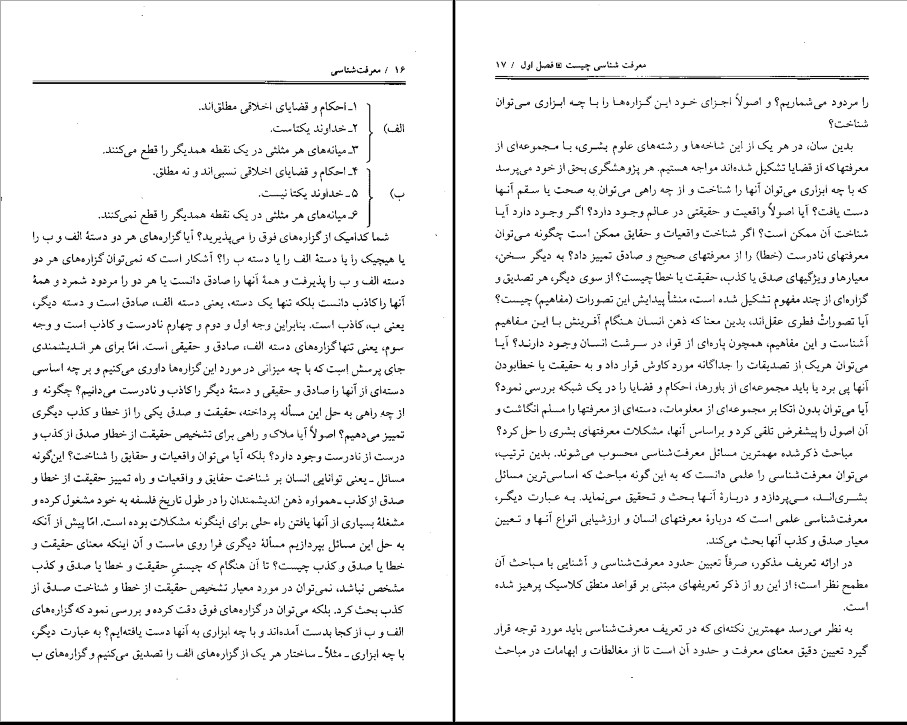 ۱۶ / معرفت‌شناسی
الف)
۱ـ احکام و قضایای اخلاقی مطلق‌اند.
۲ـ خداوند یکتاست.
۳ـ میانه‌های هر مثلثی در یک نقطه همدیگر را قطع می‌کنند.
ب)
۴ـ احکام و قضایای اخلاقی نسبی‌اند و نه مطلق.
۵ـ خداوند یکتا نیست.
۶ـ میانه‌های هر مثلثی در یک نقطه همدیگر را قطع نمی‌کنند.
شما کدامیک از گزاره‌های فوق را می‌پذیرید؟ آیا گزاره‌های هر دو دستهٔ الف و ب را
یا هیچیک را یا دستهٔ الف را یا دسته ب را؟ آشکار است که نمی‌توان گزاره‌های هر دو
دسته الف و ب را پذیرفت و همهٔ آنها را صادق دانست یا هر دو را مردود شمرد و همهٔ
آنها را کاذب دانست بلکه تنها یک دسته، یعنی دسته الف، صادق است و دسته دیگر،
یعنی ب، کاذب است. بنابراین وجه اول و دوم و چهارم نادرست و کاذب است و وجه
سوم، یعنی تنها گزاره‌های دسته الف، صادق و حقیقی است. امّا برای هر اندیشمندی
جای پرسش است که با چه میزانی در مورد این گزاره‌ها داوری می‌کنیم و بر چه اساسی
دسته‌ای از آنها را صادق و حقیقی و دستهٔ دیگر را کاذب و نادرست می‌دانیم؟ چگونه و
از چه راهی به حل این مسأله پرداخته، حقیقت و صدق یکی را از خطا و کذب دیگری
تمییز می‌دهیم؟ اصولاً آیا ملاک و راهی برای تشخیص حقیقت از خطا و صدق از کذب و
درست از نادرست وجود دارد؟ بلکه آیا می‌توان واقعیات و حقایق را شناخت؟ این‌گونه
مسائل ـ یعنی توانایی انسان بر شناخت حقایق و واقعیات و راه تمییز حقیقت از خطا و
صدق از کذب ـ همواره ذهن اندیشمندان را در طول تاریخ فلسفه به خود مشغول کرده و
مشغلهٔ بسیاری از آنها یافتن راه حلی برای اینگونه مشکلات بوده است. امّا پیش از آنکه
به حل این مسائل بپردازیم مسألهٔ دیگری فرا روی ماست و آن اینکه معنای حقیقت و
خطا یا صدق و کذب چیست؟ تا آن هنگام که چیستیِ حقیقت و خطا یا صدق و کذب
مشخص نباشد، نمی‌توان در مورد معیار تشخیص حقیقت از خطا و شناخت صدق از
کذب بحث کرد. بلکه می‌توان در گزاره‌های فوق دقت کرده و بررسی نمود که گزاره‌های
الف و ب از کجا بدست آمده‌اند و با چه ابزاری به آنها دست یافته‌ایم؟ به عبارت دیگر،
با چه ابزاری ـ مثلاً ـ ساختار هر یک از گزاره‌های الف را تصدیق می‌کنیم و گزاره‌های ب
معرفت شناسی چیست فصل اول / ۱۷
را مردود می‌شماریم؟ و اصولاً اجزای خود این گزاره‌ها را با چه ابزاری می‌توان
شناخت؟
بدین سان، در هر یک از این شاخه‌ها و رشته‌های علوم بشری، با مجموعه‌ای از
معرفتها که از قضایا تشکیل شده‌اند مواجه هستیم. هر پژوهشگری بحق از خود می‌پرسد
که با چه ابزاری می‌توان آنها را شناخت و از چه راهی می‌توان به صحت یا سقم آنها
دست یافت؟ آیا اصولاً واقعیت و حقیقتی در عالم وجود دارد؟ اگر وجود دارد آیا
شناخت آن ممکن است؟ اگر شناخت واقعیات و حقایق ممکن است چگونه می‌توان
معرفتهای نادرست (خطا) را از معرفتهای صحیح و صادق تمییز داد؟ به دیگر سخن،
معیارها و ویژگیهای صدق یا کذب، حقیقت یا خطا چیست؟ از سوی دیگر، هر تصدیق و
گزاره‌ای از چند مفهوم تشکیل شده است، منشأ پیدایش این تصورات (مفاهیم) چیست؟
آیا تصوراتْ فطری عقل‌اند، بدین معنا که ذهن انسان هنگام آفرینش با این مفاهیم
آشناست و این مفاهیم، همچون پاره‌ای از قوا، در سرشت انسان وجود دارند؟ آیا
می‌توان هریک از تصدیقات را جداگانه مورد کاوش قرار داد و به حقیقت یا خطابودن
آنها پی برد یا باید مجموعه‌ای از باورها، احکام و قضایا را در یک شبکه بررسی نمود؟
آیا می‌توان بدون اتکا بر مجموعه‌ای از معلومات، دسته‌ای از معرفتها را مسلم انگاشت و
آن اصول را پیشفرض تلقی کرد و براساس آنها، مشکلات معرفتهای بشری را حل کرد؟
مباحث ذکر شده مهمترین مسائل معرفت‌شناسی محسوب می‌شوند. بدین ترتیب،
می‌توان معرفت‌شناسی را علمی دانست که به این گونه مباحث که اساسی‌ترین مسائل
بشری‌اند، می‌پردازد و دربارهٔ آنها بحث و تحقیق می‌نماید. به عبارت دیگر،
معرفت‌شناسی علمی است که دربارهٔ معرفتهای انسان و ارزشیابی انواع آنها و تعیین
معیار صدق و کذب آنها بحث می‌کند.
در ارائه تعریف مذکور، صرفاً تعیین حدود معرفت‌شناسی و آشنایی با مباحث آن
مطمح نظر است؛ از این رو از ذکر تعریفهای مبتنی بر قواعد منطق کلاسیک پرهیز شده
است.
به نظر می‌رسد مهمترین نکته‌ای که در تعریف معرفت‌شناسی باید مورد توجه قرار
گیرد تعیین دقیق معنای معرفت و حدود آن است تا از مغالطات و ابهامات در مباحث